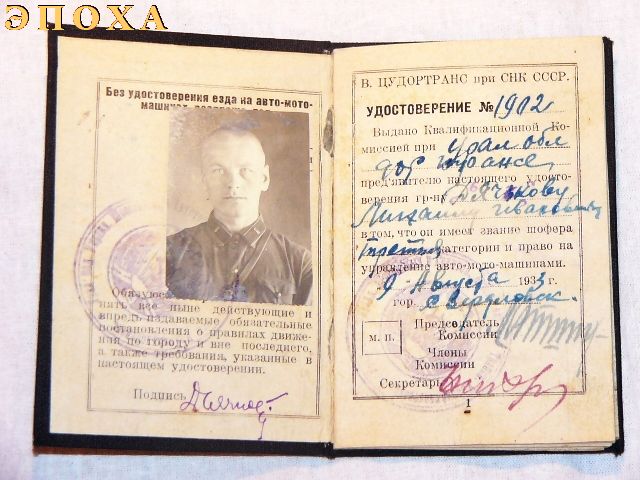 ЭПОХА
Без удостоверения езда на авто-мото-
машинах
Обязуюсь
нять все ныне действующие и
впредь издаваемые обязательные
постановления о правилах движе-
ния по городу и вне последнего,
а также требования, указанные в
настоящем удостоверении.
Подпись
В. ЦУДОРТРАНС при СНК СССР.
УДОСТОВЕРЕНИЕ № 1902
Выдано Квалификационной Ко-
миссией при Урал обл
дор трансе
пред'явителю настоящего удосто-
верения гр-ну Дьячкову
Михаилу Ивановичу
в том, что он имеет звание шофера
третьей категории и право на
управление авто-мото-машинами.
9 Августа 1933 г.
гор. Свердловск.
Председатель
Комиссии
М. П.
Члены
Комиссии
Секретарь
1